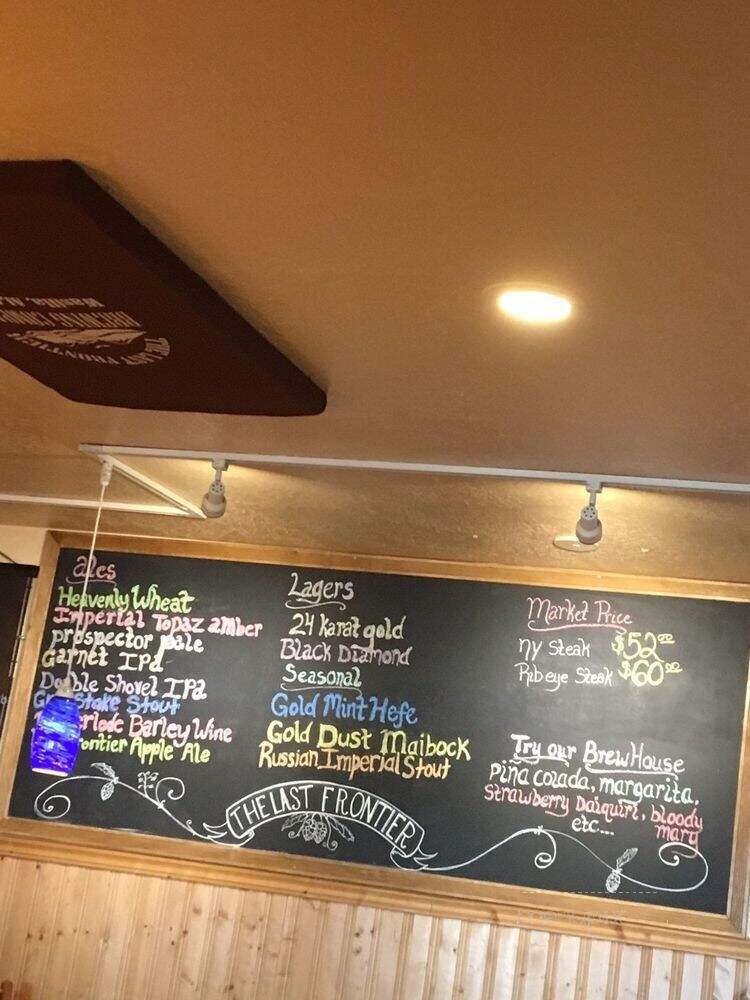 THE LAST FRONTIER
Wasilla, A
ales
Heavenly Wheat
Imperial Topaz amber
prospector pale
Garnet IPa
Double Shovel IPa
Stake Stout
Barley Wine
Apple Ale
Lagers
24 karat gold
Black Diamond
Seasonal
Gold Mint Hefe
Gold Dust Maibock
Russian Imperial Stout
THE LAST FRONTIER
Market Price
ny Steak $52.00
Rib eye Steak $60.00
Try our BrewHouse
Piña colada, margarita,
Strawberry Daiquiri, bloody
mary
etc...